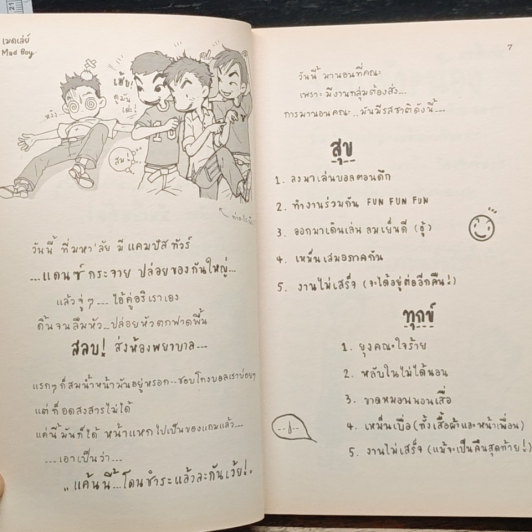 เมดเล่ย์
Mad Boy
เฮ้ย!
ดูมัน
วันนี้ ที่มหา'ลัย มี แคมปัส ทัวร์
...แดนซ์กระจาย ปล่อยของกันใหญ่...
แล้วจู่ๆ.... ไอ้คู่อริเราเอง
ดิ้นจนลืมหัว...ปล่อยหัวตกฟาดพื้น
สลบ! ส่งห้องพยาบาล...
แรกๆก็สมน้ำหน้ามันอยู่หรอก...ชอบโกงบอลเราบ่อยๆ
แต่ก็อดสงสารไม่ได้
แค่นี้มันก็ได้ หน้าแหกไปเป็นของแถมแล้ว...
...เอาเป็นว่า....
"แค้นนี้...โดนชำระแล้วละกันเว้ย!"
7
วันนี้ มานอนที่คณะ
เพราะ มีงานกลุ่มต้องส่ง...
การมานอนคณะ...มันมีรสชาติดังนี้....
สุข
1. ลงมาเล่นบอลตอนดึก
2. ทำงานร่วมกัน FUN FUN FUN
3. ออกมาเดินเล่น ลมเย็นดี (อู้)
4. เหม็นเสมอภาคกัน
5. งานไม่เสร็จ (จะได้อยู่ต่ออีกคืน!)
ทุกข์
1. ยุงคณะใจร้าย
2. หลับในไม่ได้นอน
3. ขาดหมอนนอนเสื่อ
4. เหม็นเบื่อ (ทั้งเสื้อผ้าและหน้าเพื่อน)
5. งานไม่เสร็จ (แม้จะเป็นคืนสุดท้าย!)